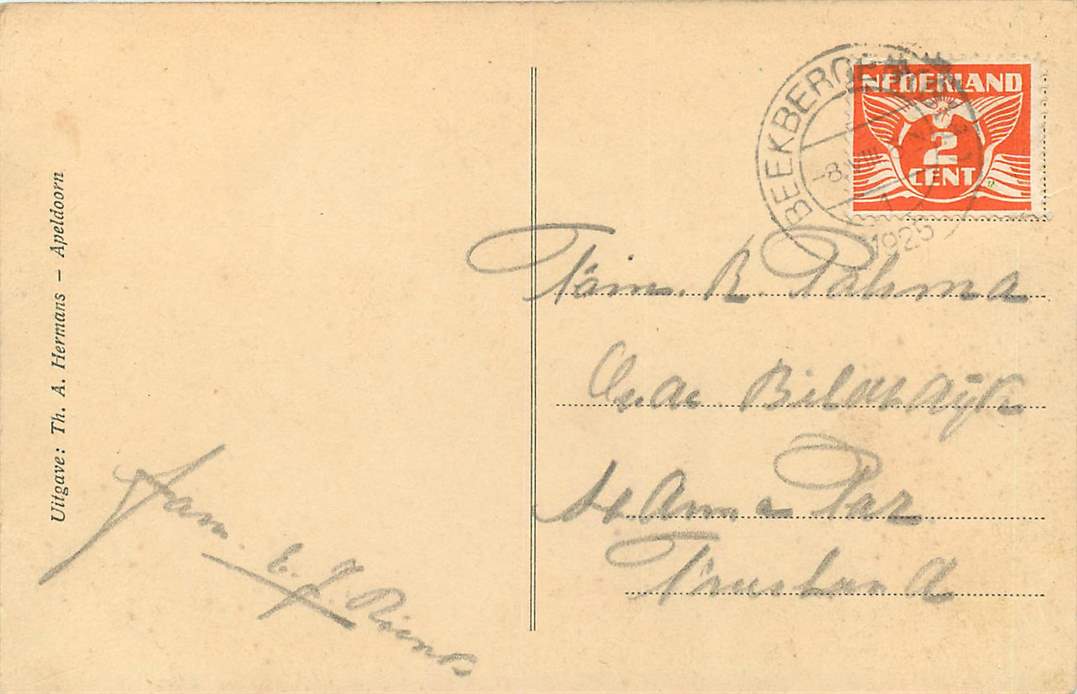 Uitgave: Th. A. Hermans – Apeldoorn
BEEKBERGEN
-8.VIII
1925
NEDERLAND
2
CENT
Fam. R. Palsma
Oude Bildtdijk
St Anna Par.
Friesland
Fam. E. J. Riems